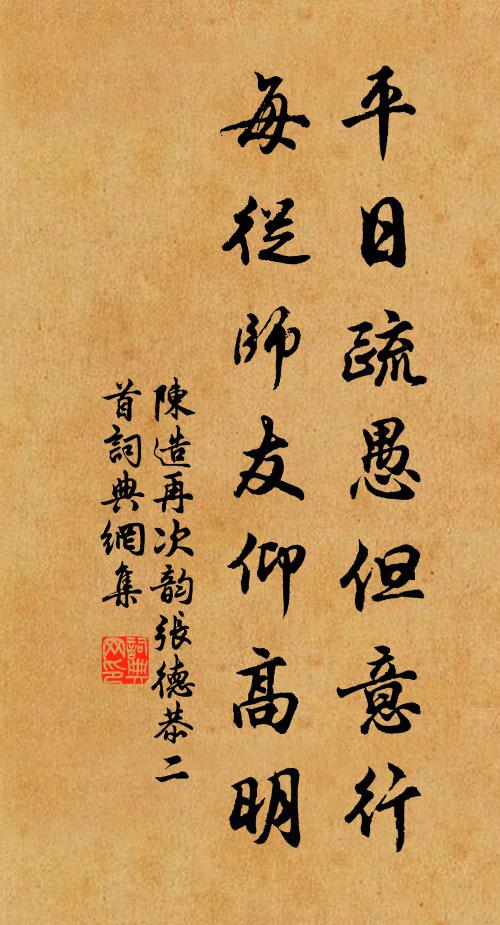 平日疏愚但意行
每從師友仰高明
陳造再次韵張德恭二
首詞典網集
詞典
网印